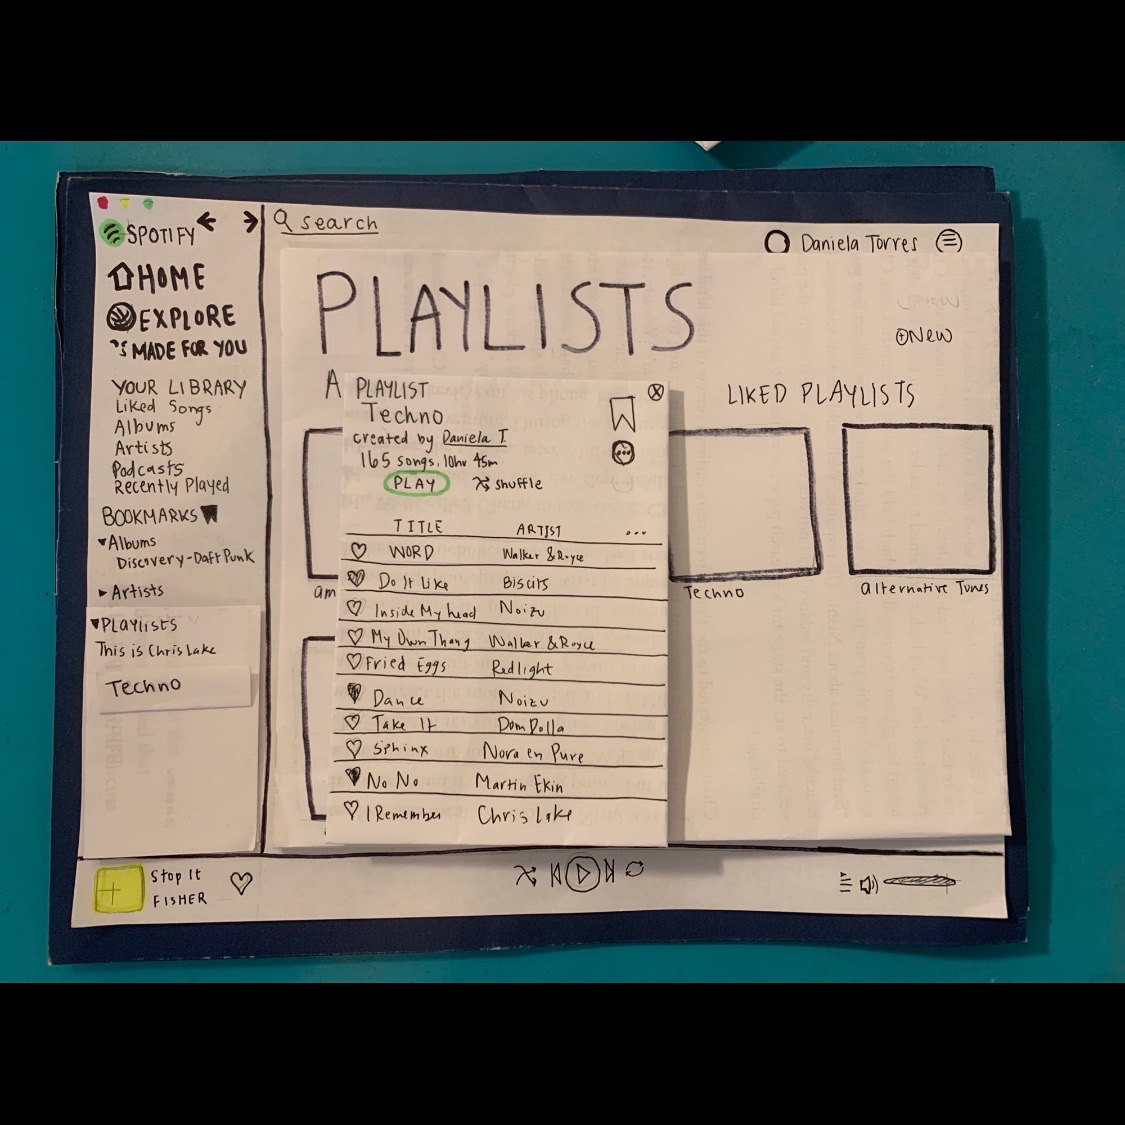 SPOTIFY
HOME
EXPLORE
MADE FOR YOU
YOUR LIBRARY
Liked Songs
Albums
Artists
Podcasts
Recently Played
BOOKMARKS
Albums
Discovery-Daft Punk
Artists
Playlists
This is Chris Lake
Techno
search
Daniela Torres
PLAYLISTS
New
A
LIKED PLAYLISTS
PLAYLIST
Techno
created by Daniela T.
165 songs, 10hr 45m
PLAY shuffle
TITLE ARTIST ...
WORD Walker & Royce
Do It Like Biscits
Inside My head Noizu
My Own Thang Walker & Royce
Fried Eggs Redlight
Dance Noizu
Take It Dom Dolla
Sphinx Nora en Pure
No No Martin Ekin
I Remember Chris Lake
am
Techno
alternative Tunes
Stop It
FISHER